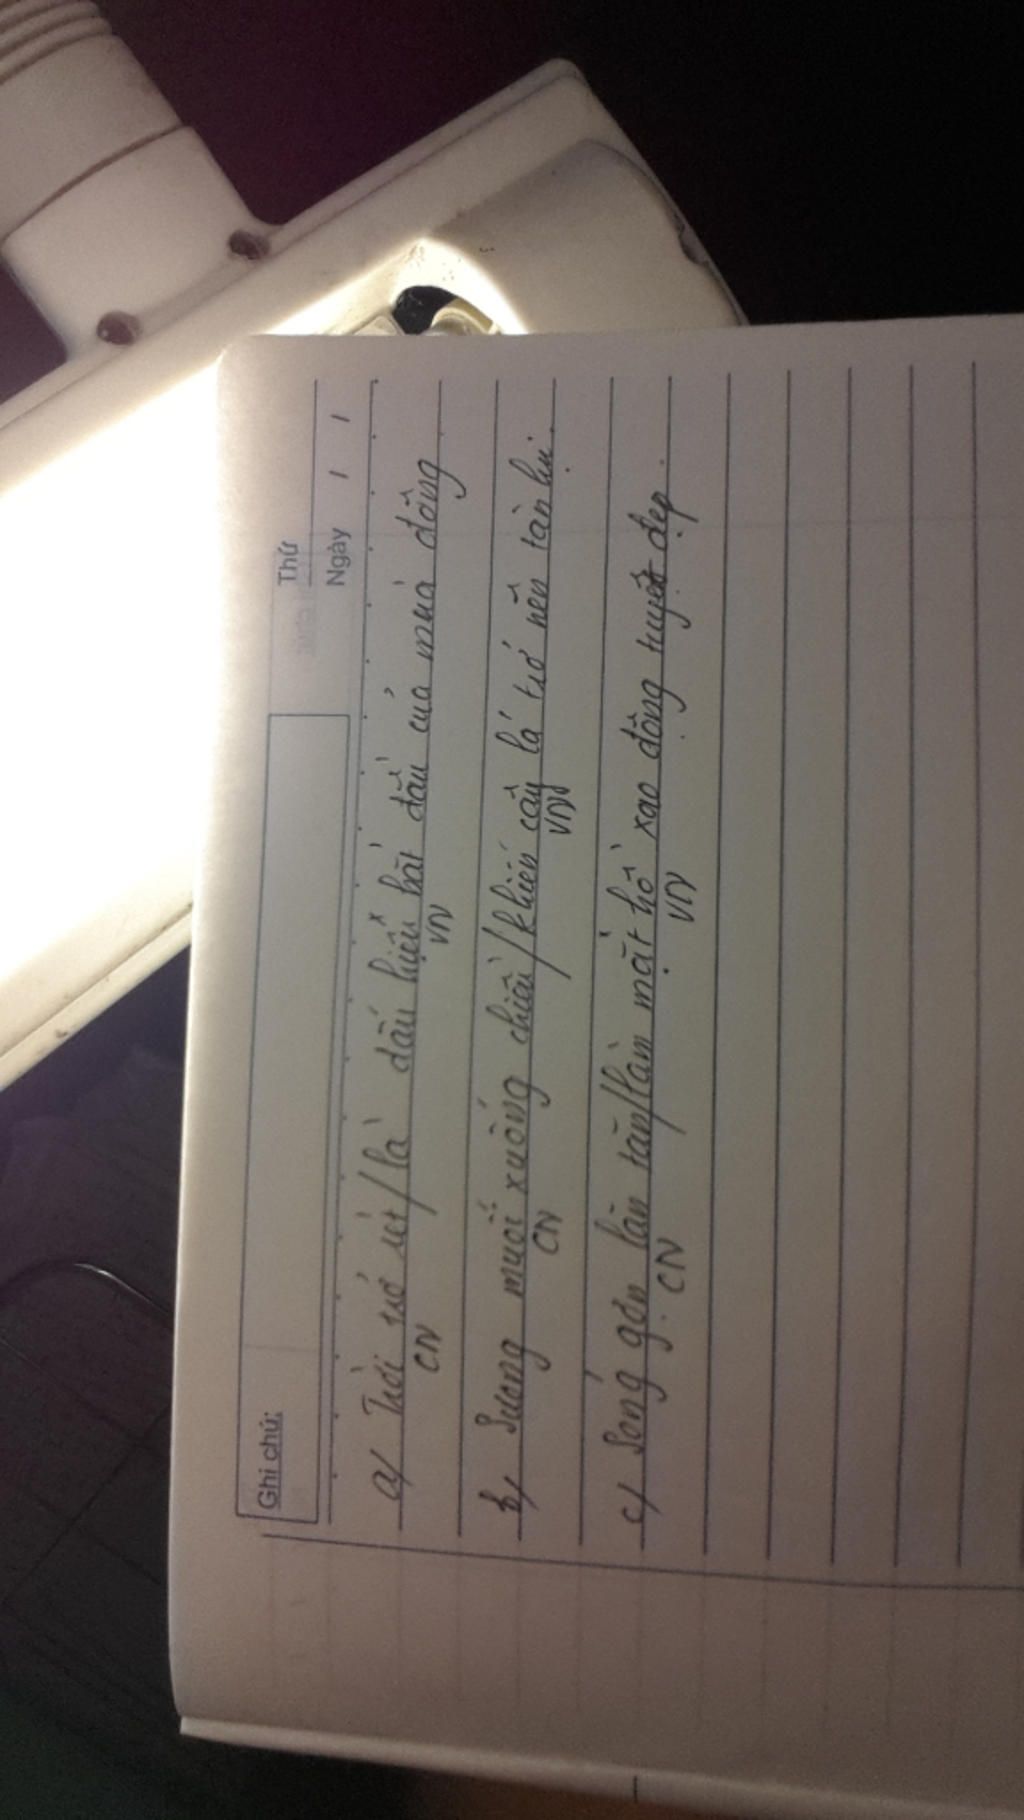 Ghi chú:
Thứ
Ngày / /
a/ Trời trở rét / là dấu hiệu bắt đầu của mùa đông
CN VN
b/ Sương muối xuống chiều / khiến cây lá trở nên tàn lụi.
CN VN
c/ Sóng gợn lăn tăn / làm mặt hồ xao động tuyệt đẹp.
CN VN